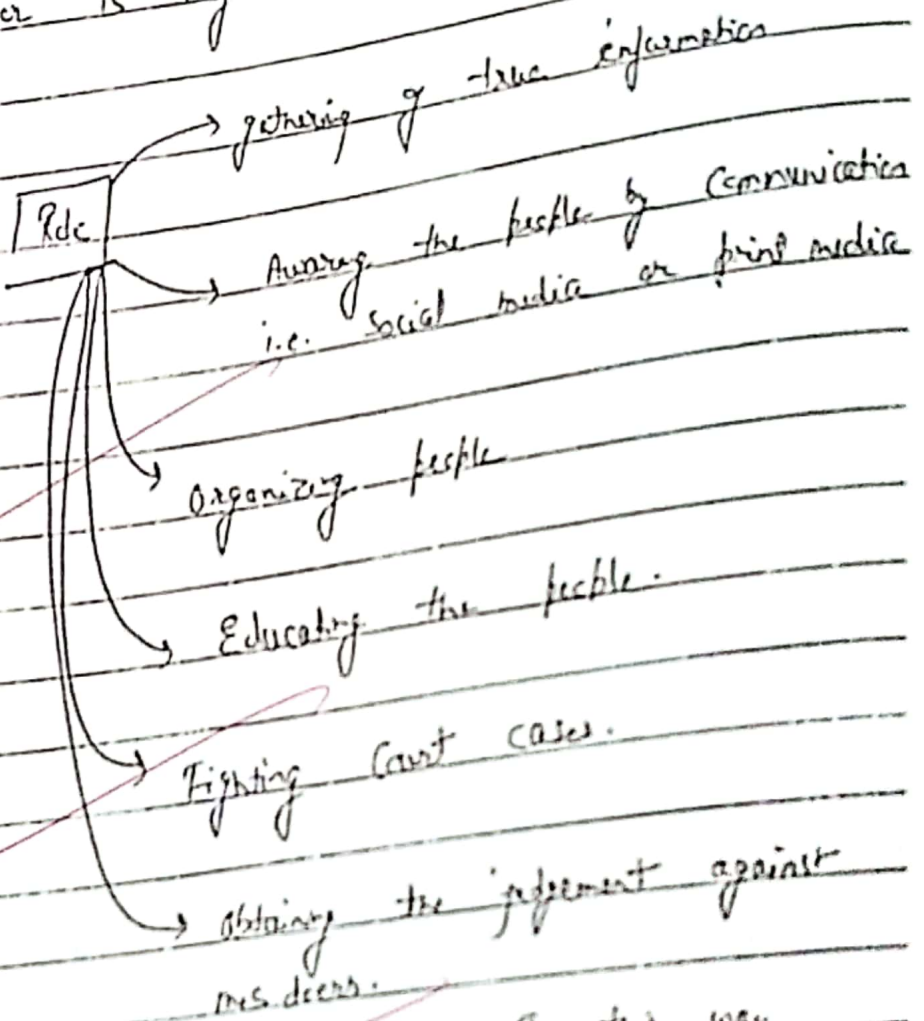 is
gathering of true information
Role
Awaring the people by Communication
i.e. social media or print media
Organizing people
Educating the people.
Fighting Court cases.
Obtaining the judgement against
misdeers.